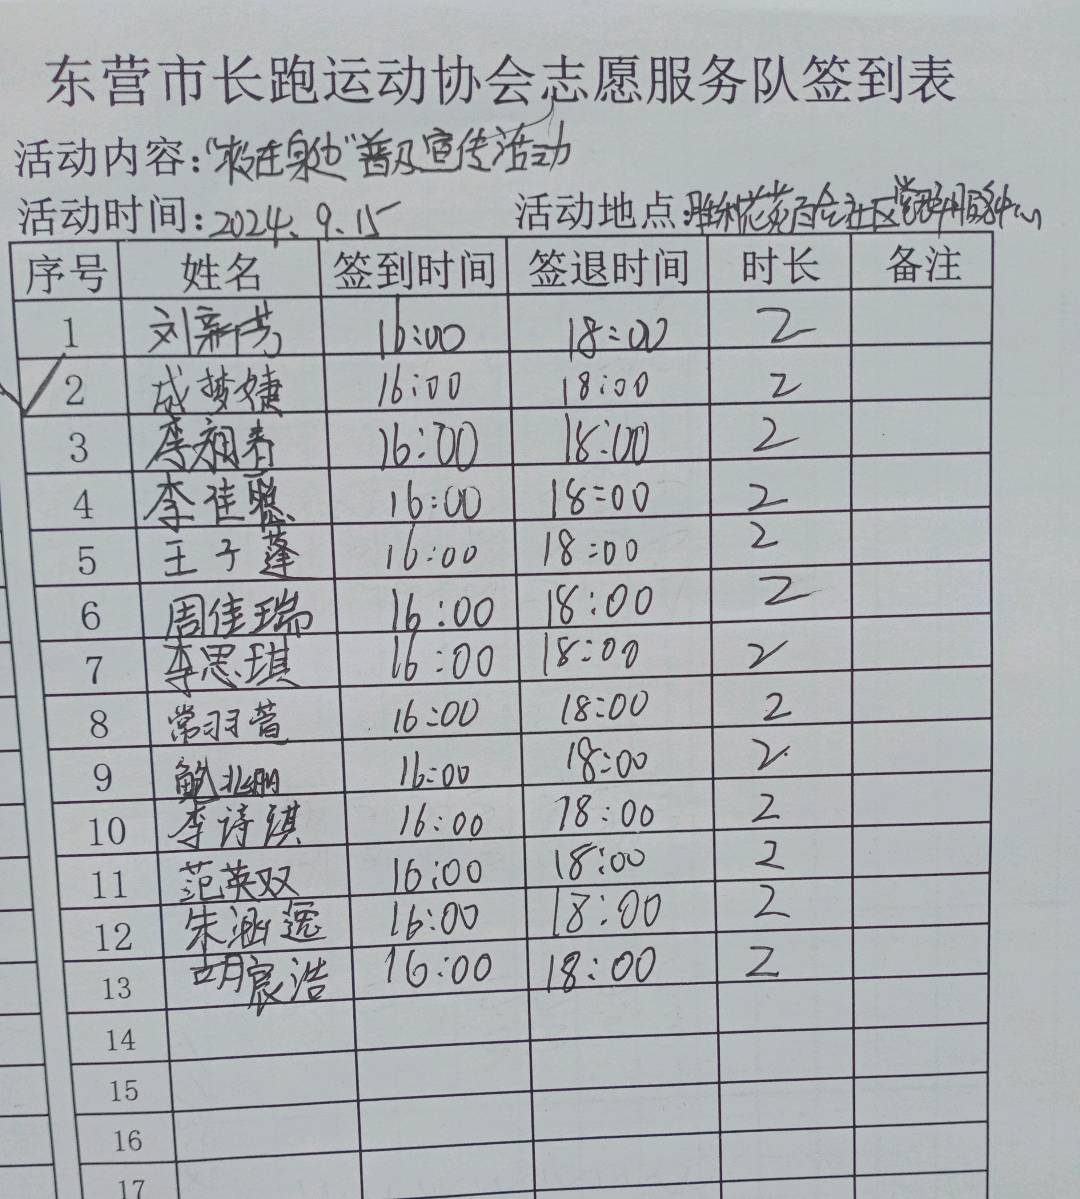 东营市长跑运动协会志愿服务队签到表
活动内容:“救在身边”普及宣传活动
活动时间:2024.9.15 活动地点:胜利花苑百合社区党群服务中心
序号 姓名 签到时间 签退时间 时长 备注
1 刘新芳 16:00 18:00 2
2 成梦婕 16:00 18:00 2
3 李翔春 16:00 18:00 2
4 李佳聪 16:00 18:00 2
5 王子蓬 16:00 18:00 2
6 周佳瑞 16:00 18:00 2
7 李思琪 16:00 18:00 2
8 常羽萱 16:00 18:00 2
9 16:00 18:00 2
10 李诗琪 16:00 18:00 2
11 范英双 16:00 18:00 2
12 朱涵 16:00 18:00 2
13 胡宸浩 16:00 18:00 2
14
15
16
17